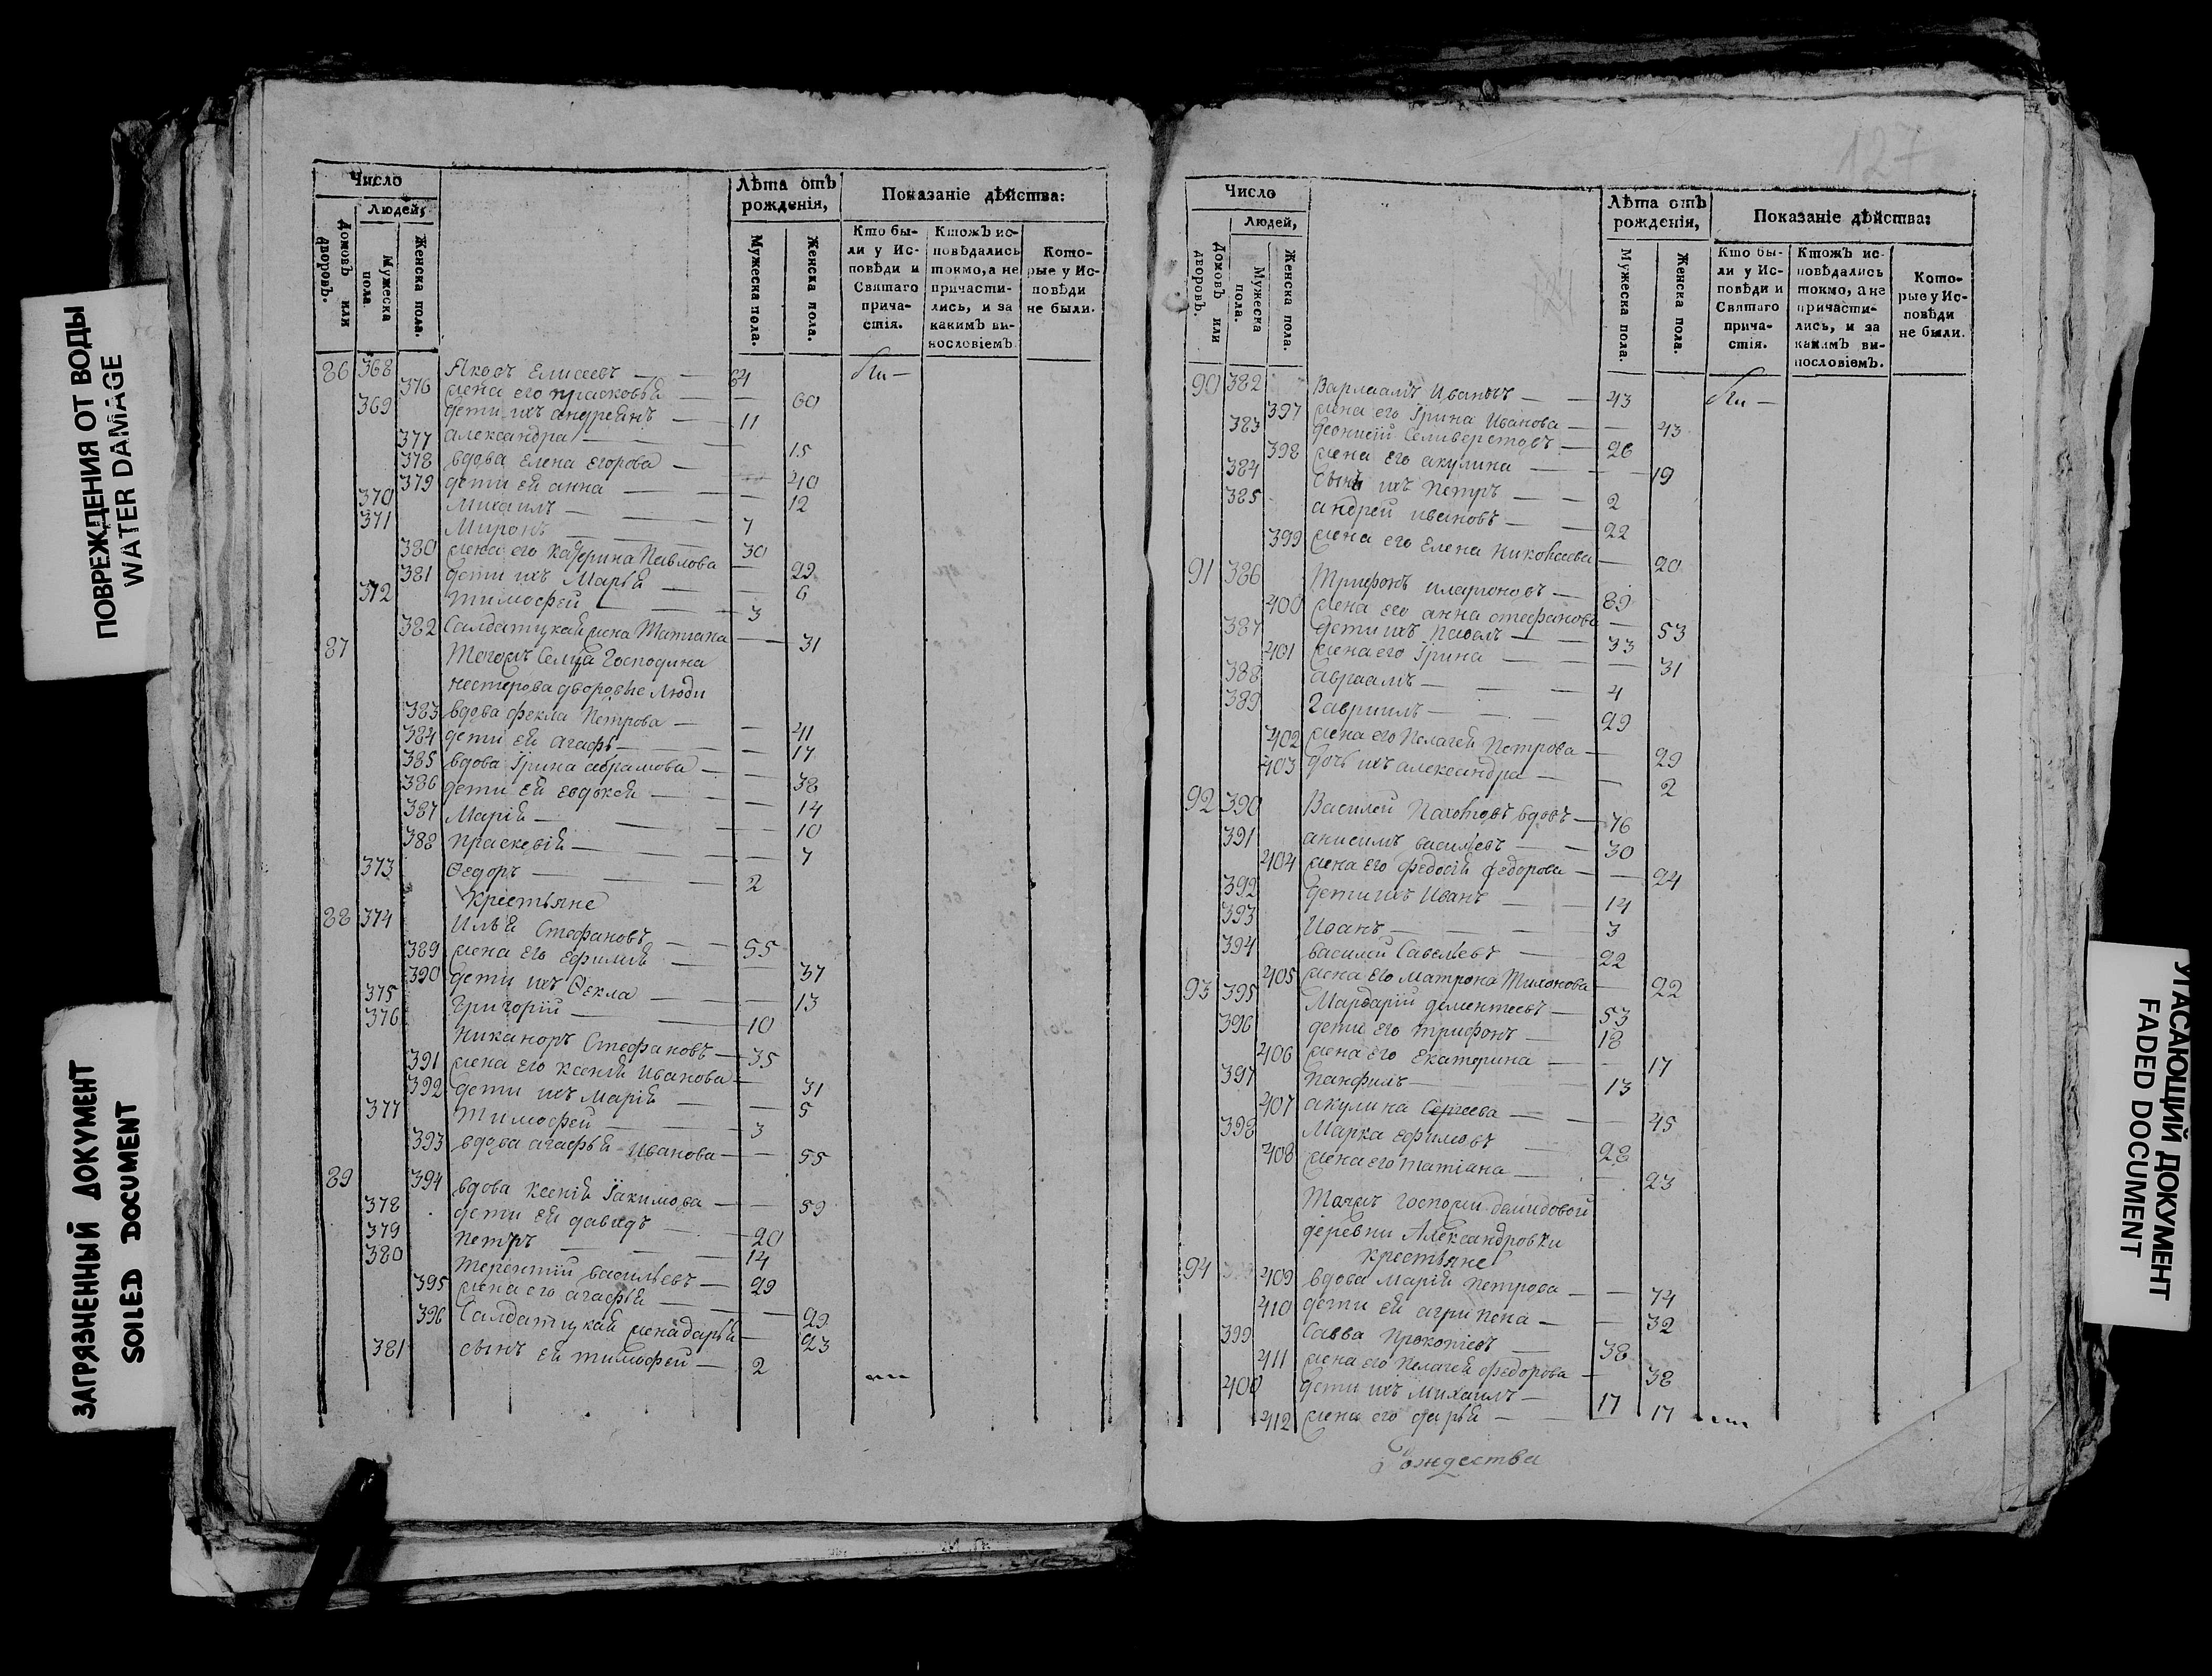 ПОВРЕЖДЕНИЯ ОТ ВОДЫ
WATER DAMAGE
ЗАГРЯЗНЕННЫЙ ДОКУМЕНТ
SOILED DOCUMENT
Число
Лѣта отъ рожденія,
Показаніе дѣйства:
Людей,
Домовъ или дворовъ.
Мужеска пола.
Женска пола.
Мужеска пола.
Женска пола.
Кто были у Исповѣди и Святаго причастія.
Ктожъ исповѣдались токмо, а не причастились, и за какимъ винословіемъ.
Которые у Исповѣди не были.
86 368 Яковъ Елисеевъ 64
376 жена его прасковья 60
369 дети ихъ андреянъ 11
377 александра 15
378 вдова Елена Егорова 40
379 дети ея анна 12
370 Михаилъ 7
371 Миронъ 30
380 жена его Катерина Павлова 29
381 дети ихъ Марья 6
372 тимофей 3
382 Салдатцкая жена Татиана 31
87 Тогожъ Селца Господина
нестерова дворовые люди
383 вдова фекла Петрова 41
384 дети ея Агафь 17
385 вдова Ірина абрамова 38
386 дети ея евдокея 14
387 Марія 10
388 праскевія 7
373 Ѳедоръ 2
Крестьяне
88 374 Илья Стефановъ 55
389 жена его ефимия 37
390 дети ихъ Ѳекла 13
375 Григорій 10
376 Никаноръ Стефановъ 35
391 жена его ксения Иванова 31
392 дети ихъ марія 5
377 тимофей 3
393 вдова агафья Иванова 55
89 394 вдова ксенія Їакимова 59
378 дети ея давидъ 20
379 петръ 14
380 терентий васильевъ 29
395 жена его агафья 29
396 Салдатцкая жена дарья 23
381 сынъ ея тимофей 2
127
Число
Лѣта отъ рожденія,
Показаніе дѣйства:
Людей,
Домовъ или дворовъ.
Мужеска пола.
Женска пола.
Мужеска пола.
Женска пола.
Кто были у Исповѣди и Святаго причастія.
Ктожъ исповѣдались токмо, а не причастились, и за какимъ винословіемъ.
Которые у Исповѣди не были.
90 382 Варлаамъ Ивановъ 43
397 жена его Ірина Иванова 43
383 деонисій Селиверстовъ 26
398 жена его акулина 19
384 Сынъ ихъ Петръ 2
385 андрей ивановъ 22
399 жена его Елена Николаева 20
91 386 Трифонъ иларионовъ 89
400 жена его анна стефанова 53
387 дети ихъ павелъ 33
401 жена его Ірина 31
388 авраамъ 4
389 Гавриилъ 29
402 жена его Пелагея Петрова 29
403 дочь ихъ александра 2
92 390 Василей Пахомовъ вдовъ 76
391 анисимъ васильевъ 30
404 жена его федосия федорова 24
392 дети ихъ Иванъ 14
393 Иванъ 3
394 василий Савельевъ 22
405 жена его матрона Тихонова 22
93 395 Мардарій дементеевъ 53
396 дети его трифонъ 18
406 жена его Екатерина 17
397 Панфилъ 13
407 акулина Сергеева 45
398 Марка ефимовъ 28
408 жена его татіана 23
Таяжъ госпожи демидовой
деревни Александровки
крестьяне
94 409 вдова Марія петрова 74
410 дети ея агрипена 32
399 Савва Прокопіевъ 38
411 жена его Пелагея федорова 38
400 дети ихъ михаилъ 17
412 жена его дарья 17
Рождества
УГАСАЮЩИЙ ДОКУМЕНТ
FADED DOCUMENT